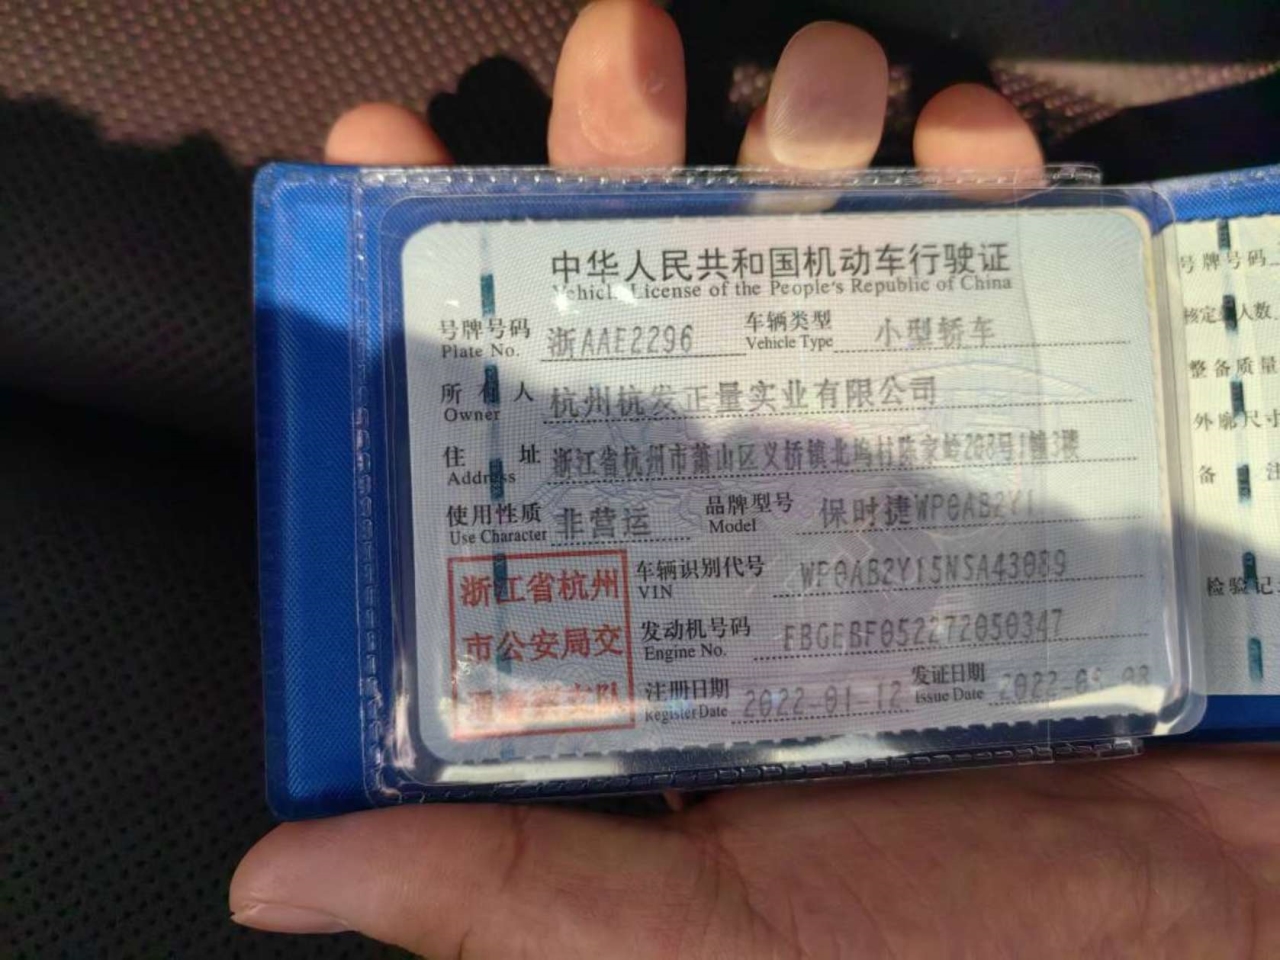 中华人民共和国机动车行驶证
Vehicle License of the People's Republic of China
号牌号码 浙AAE2296 车辆类型 小型轿车
Plate No. Vehicle Type
所有人 杭州杭发正量实业有限公司
Owner
住 址 浙江省杭州市萧山区义桥镇北坞村陈家岭208号1幢3楼
Address
使用性质 非营运 品牌型号 保时捷WP0AB2Y1
Use Character Model
浙江省杭州
市公安局交
车辆识别代号 WP0AB2Y15NSA43089
VIN
发动机号码
Engine No.
注册日期 2022-01-12 发证日期
Register Date Issue Date
号牌号码
人数
整备质量
外廓尺寸
备 注
检验记